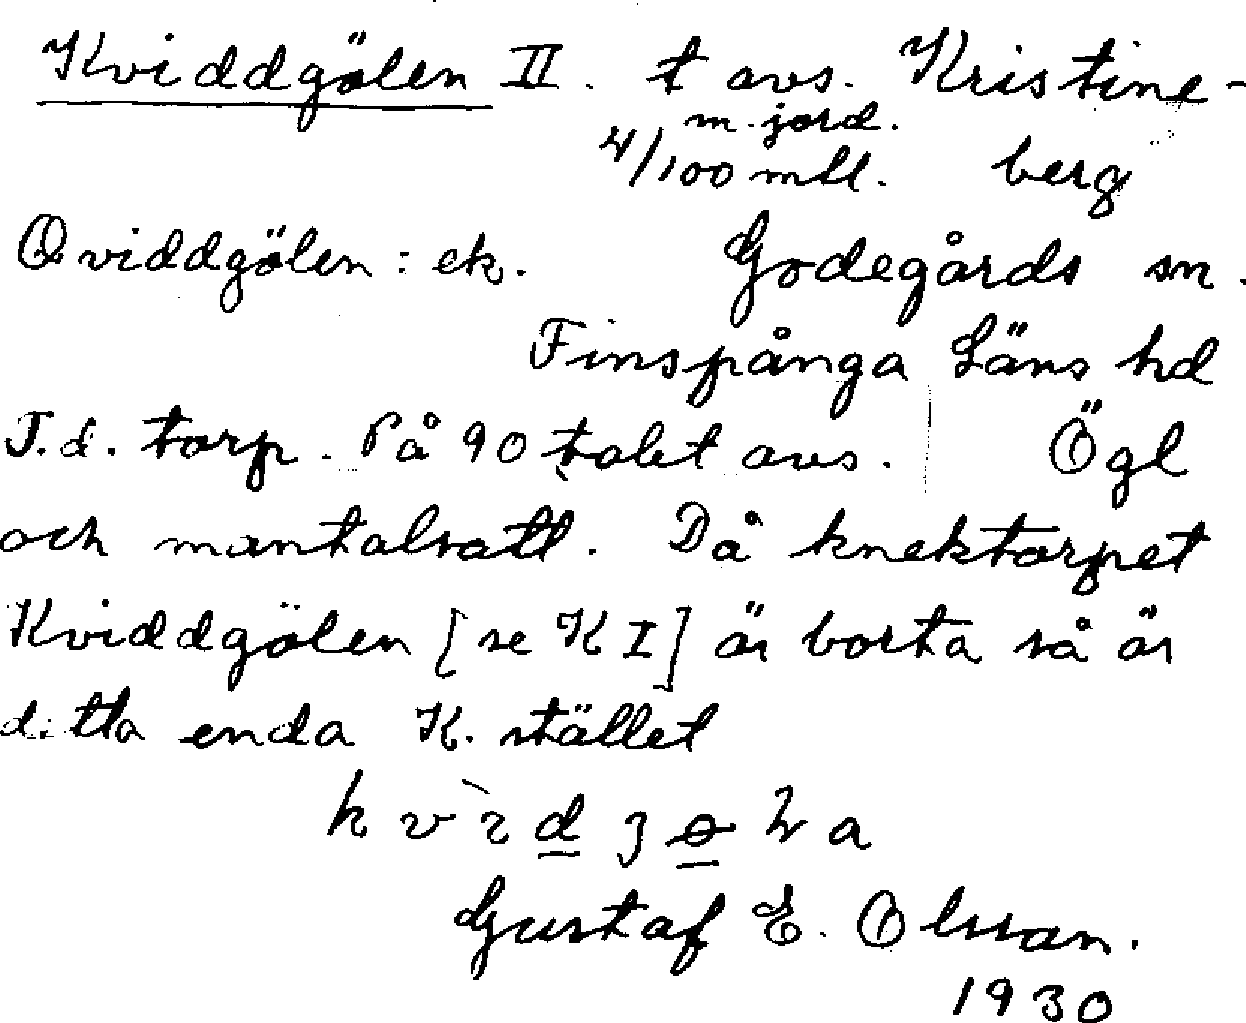 Kviddgölen II. t avs. Kristine-
m. jord.
4/100 mtl. berg
Qviddgölen: ek. Godegårds sn.
Finspånga Läns hd
F.d. torp. På 90 talet avs. Ögl
och mantalsatt. Då knektorpet
Kviddgölen [se K I] är borta så är
detta enda K. stället
Gustaf E. Olsson.
1930